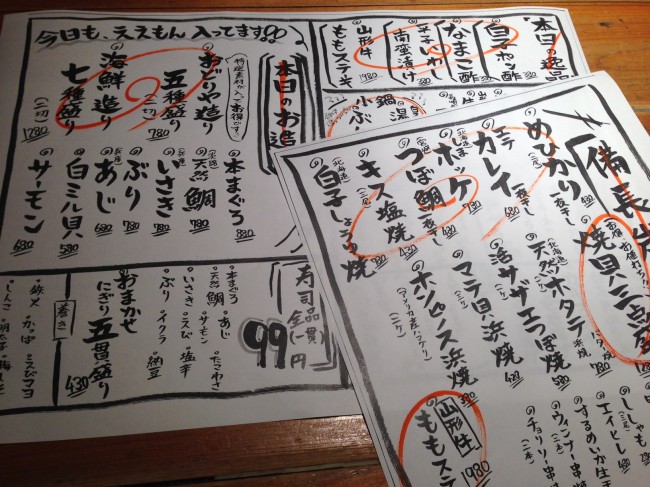 今日も、ええもん入ってます!!
本日の逸品
白子ポン酢
なまこ酢
平子いわし
南蛮漬け
山形牛
ももステーキ 1980
鍋
小ぶり
本日のお造
特選素材が入ってお得です。
おどりや造り
五種盛り
(二切) 780
海鮮造り
七種盛り
(二切) 1280
本まぐろ 880
天然鯛 780
いさき 780
ぶり 780
あじ 680
白ミル貝 580
サーモン 680
寿司
全品(一貫)
99円
・本まぐろ
・天然鯛
・いさき
・ぶり
・あじ
・サーモン
・えび
・イクラ
・たこわさ
・塩辛
・納豆
おまかせ
にぎり五貫盛り 430
巻き
・鉄火
・かっぱ
・えびマヨ
・しんこ
・明太子
備長炭
めひかり一夜干し
エテカレイ一夜干し
(北海道)
しまホッケ
つぼ鯛一夜干し 430
キス塩焼
(北海道)
白子しょうゆ焼
焼貝三点盛
(北海道)
天然ホタテ浜焼
活サザエつぼ焼 480
マテ貝浜焼
ホンビノス浜焼 380
山形牛
ももステ 1980
ししゃも
エイヒレ
するめいか生干
ウィンナー串
チョリソー串